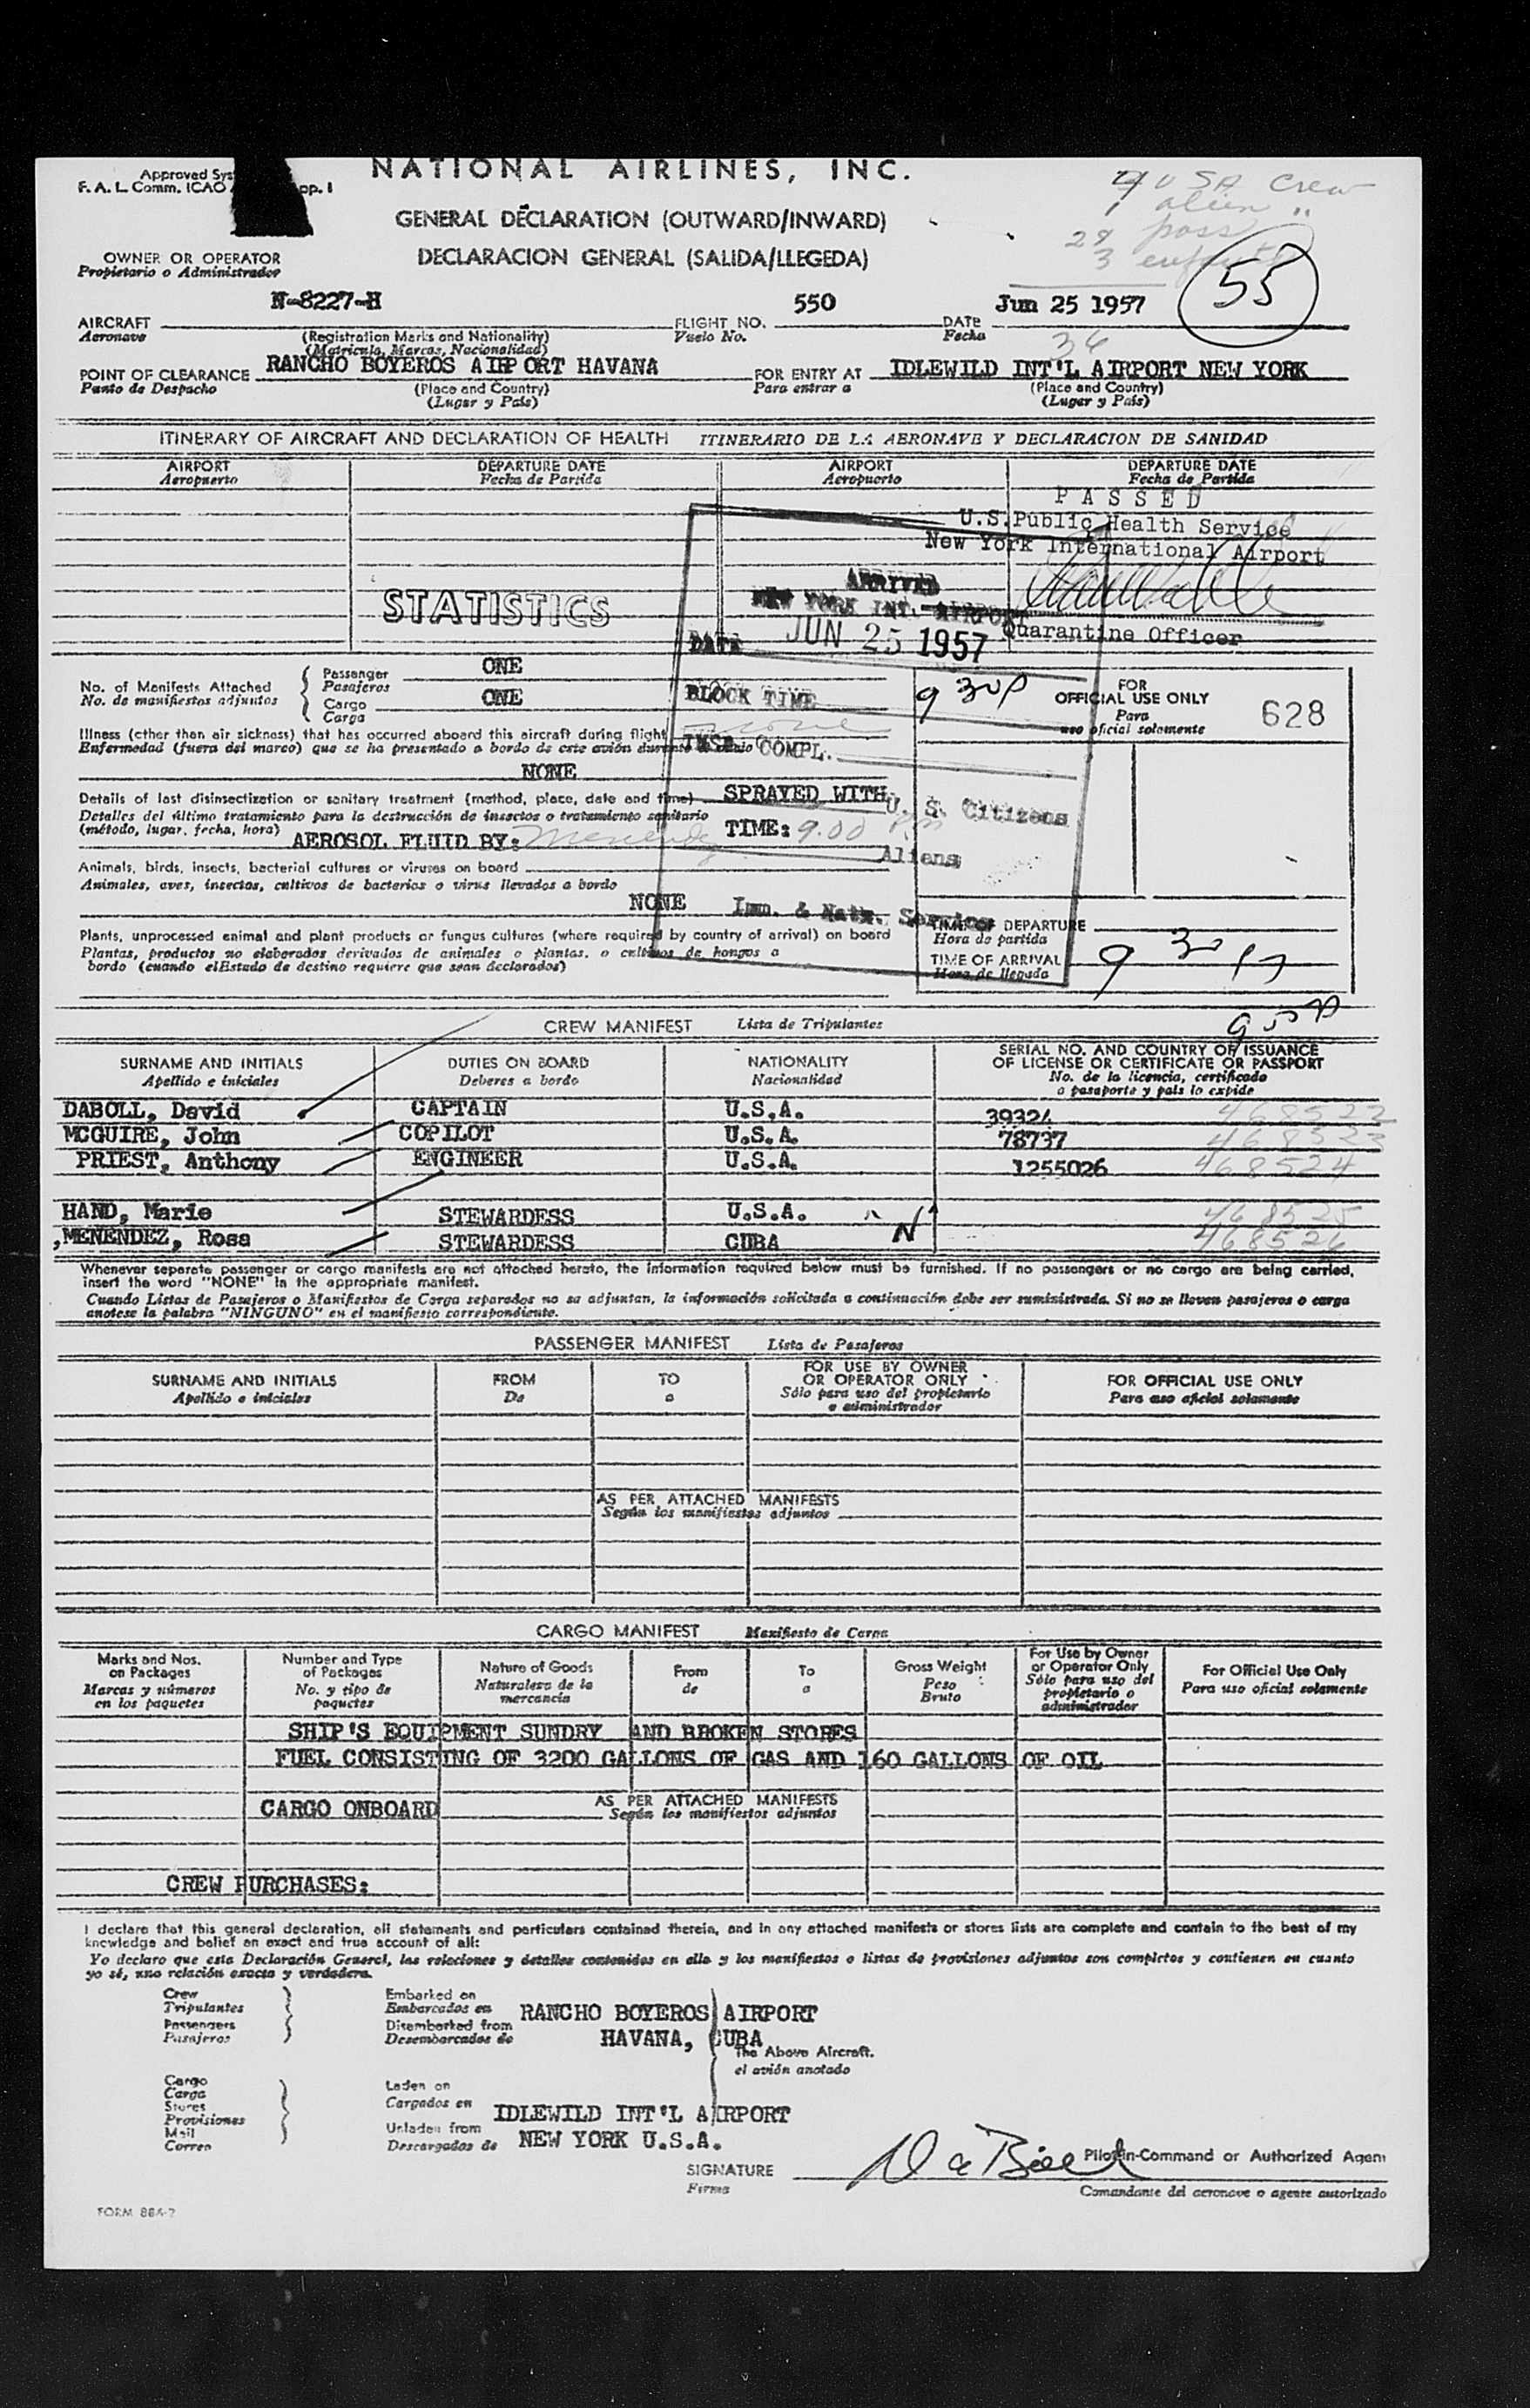 Approved Sys
F. A. L. Comm. ICAO pp. I
NATIONAL AIRLINES, INC.
GENERAL DECLARATION (OUTWARD/INWARD)
DECLARACION GENERAL (SALIDA/LLEGEDA)
USA Crew
alien "
29 pass
3
55
OWNER OR OPERATOR
Propietario o Administrador
AIRCRAFT N-8227-H FLIGHT NO. 550 DATE Jun 25 1957
Aeronave (Registration Marks and Nationality) Vuelo No. Fecha
(Matricula, Marcas, Nacionalidad) 36
POINT OF CLEARANCE RANCHO BOYEROS AIRPORT HAVANA FOR ENTRY AT IDLEWILD INT'L AIRPORT NEW YORK
Punto de Despacho (Place and Country) Para entrar a (Place and Country)
(Lugar y País) (Lugar y País)
ITINERARY OF AIRCRAFT AND DECLARATION OF HEALTH ITINERARIO DE LA AERONAVE Y DECLARACION DE SANIDAD
AIRPORT DEPARTURE DATE AIRPORT DEPARTURE DATE
Aeropuerto Fecha de Partida Aeropuerto Fecha de Partida
PASSED
U.S.Public Health Service
New York International Airport
Quarantine Officer
STATISTICS
ARRIVED
NEW YORK INT. AIRPORT
DATE JUN 25 1957
BLOCK TIME 930p
INSP. COMPL.
U. S. Citizens
Aliens
Imm. & Natz. Service
No. of Manifests Attached Passenger ONE
No. de manifiestos adjuntos Pasajeros
Cargo ONE
Carga
FOR
OFFICIAL USE ONLY
Para
uso oficial solamente
628
Illness (other than air sickness) that has occurred aboard this aircraft during flight none
Enfermedad (fuera del mareo) que se ha presentado a bordo de este avión durante el vuelo
NONE
Details of last disinsectization or sanitary treatment (method, place, date and time) SPRAYED WITH
Detalles del último tratamiento para la destrucción de insectos o tratamiento sanitario
(método, lugar, fecha, hora) AEROSOL FLUID BY: Menendez TIME: 9.00 pm
Animals, birds, insects, bacterial cultures or viruses on board
Animales, aves, insectos, cultivos de bacterias o virus llevados a bordo
NONE
Plants, unprocessed animal and plant products or fungus cultures (where required by country of arrival) on board
Plantas, productos no elaborados derivados de animales o plantas, o cultivos de hongos a
bordo (cuando elEstado de destino requiere que sean declarados)
TIME OF DEPARTURE
Hora de partida
TIME OF ARRIVAL 930
Hora de llegada
CREW MANIFEST Lista de Tripulantes
SURNAME AND INITIALS DUTIES ON BOARD NATIONALITY SERIAL NO. AND COUNTRY OF ISSUANCE
Apellido e iniciales Deberes a bordo Nacionalidad OF LICENSE OR CERTIFICATE OR PASSPORT
No. de la licencia, certificado
o pasaporte y pais lo expide
DABOLL, David CAPTAIN U.S.A. 39324 468522
MCGUIRE, John COPILOT U.S.A. 78737 468523
PRIEST, Anthony ENGINEER U.S.A. 1255026 468524
HAND, Marie STEWARDESS U.S.A. 468525
,MENENDEZ, Rosa STEWARDESS CUBA N 468526
Whenever separate passenger or cargo manifests are not attached hereto, the information required below must be furnished. If no passengers or no cargo are being carried,
insert the word "NONE" in the appropriate manifest.
Cuando Listas de Pasajeros o Manifiestos de Carga separados no su adjuntan, la información solicitada a continuación debe ser suministrada. Si no se lleven pasajeros o carga
anotese la palabra "NINGUNO" en el manifiesto correspondiente.
PASSENGER MANIFEST Lista de Pasajeros
SURNAME AND INITIALS FROM TO FOR USE BY OWNER FOR OFFICIAL USE ONLY
Apellido e iniciales De a OR OPERATOR ONLY Para uso oficial solamente
Sólo para uso del propietario
o administrador
AS PER ATTACHED MANIFESTS
Según los manifiestos adjuntos
CARGO MANIFEST Manifiesto de Carga
Marks and Nos. on Packages Number and Type of Packages Nature of Goods From To Gross Weight For Use by Owner or Operator Only For Official Use Only
Marcas y números en los paquetes No. y tipo de paquetes Naturaleza de la mercancia de a Peso Bruto Sólo para uso del propietario o administrador Para uso oficial solamente
SHIP'S EQUIPMENT SUNDRY AND BROKEN STORES
FUEL CONSISTING OF 3200 GALLONS OF GAS AND 160 GALLONS OF OIL
CARGO ONBOARD AS PER ATTACHED MANIFESTS
Según los manifiestos adjuntos
CREW PURCHASES:
I declare that this general declaration, all statements and particulars contained therein, and in any attached manifests or stores lists are complete and contain to the best of my
knowledge and belief an exact and true account of all:
Yo declaro que esta Declaración General, las relaciones y detalles contenidos en ella y los manifiestos o listas de provisiones adjuntos son completos y contienen en cuanto
yo sé, una relación exacta y verdadera.
Crew Embarked on
Tripulantes Embarcados en RANCHO BOYEROS AIRPORT
Passengers Disembarked from HAVANA, CUBA
Pasajeros Desembarcados de
The Above Aircraft.
el avión anotado
Cargo Laden on
Carga Cargados en IDLEWILD INT'L AIRPORT
Stores
Provisiones Unladen from NEW YORK U.S.A.
Mail Descargados de
Correo
SIGNATURE Pilot-in-Command or Authorized Agent
Firma Comandante del aeronave o agente autorizado
FORM 886-2